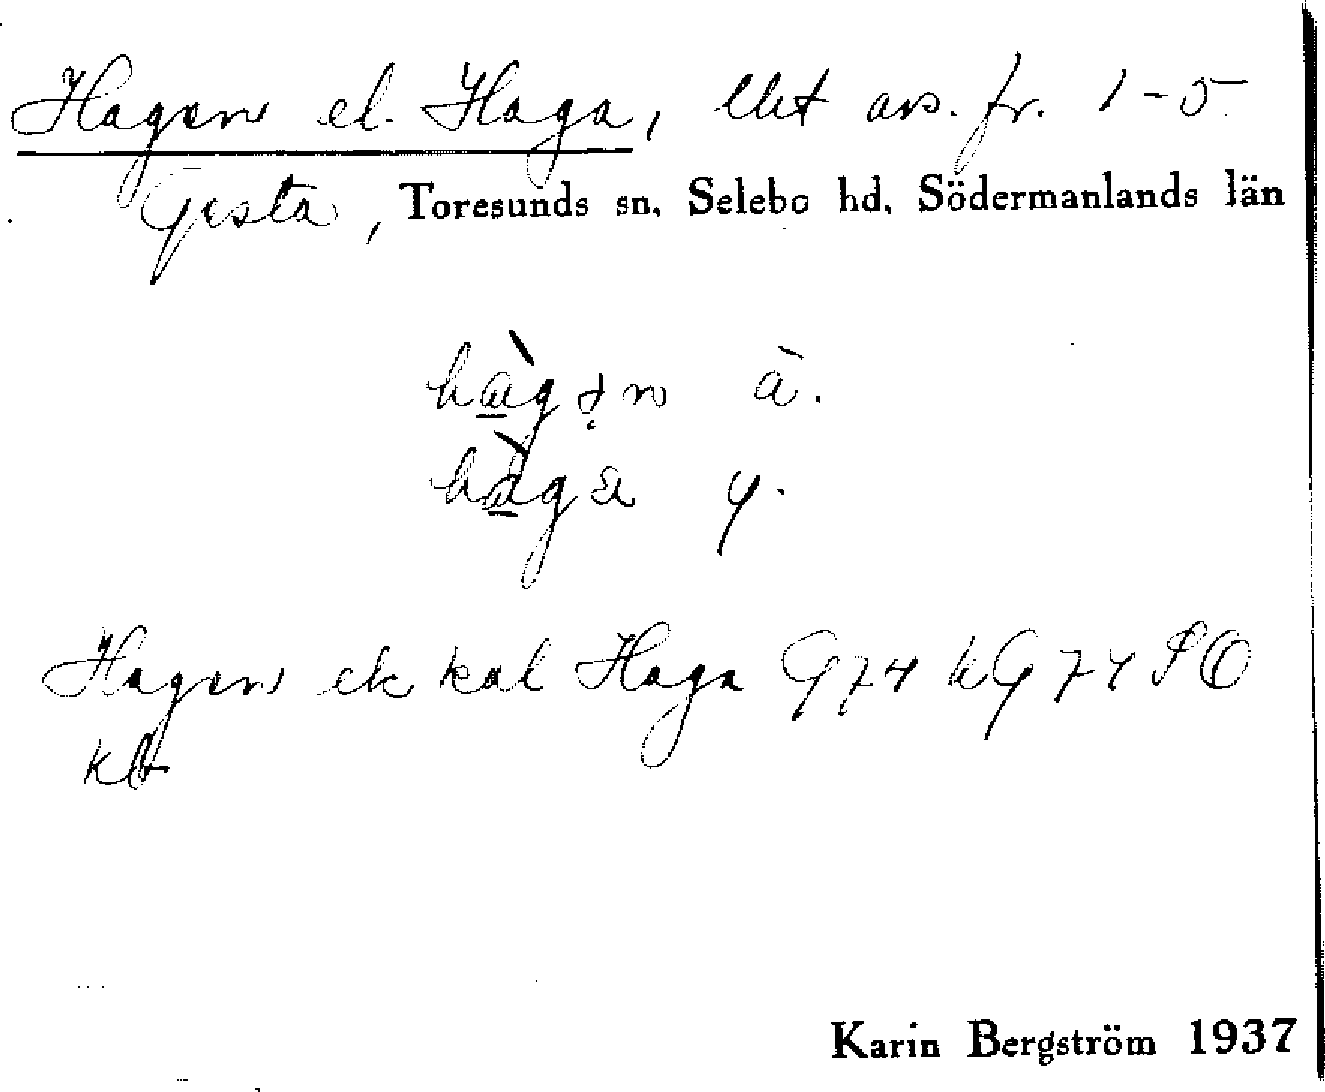 Hagen el. Haga, lht avs. fr. 1-5
Gesta, Toresunds sn. Selebo hd. Södermanlands län
hàgən ä.
hàga y.
Hagen ek kal Haga G74 hG74 PO
klt
Karin Bergström 1937